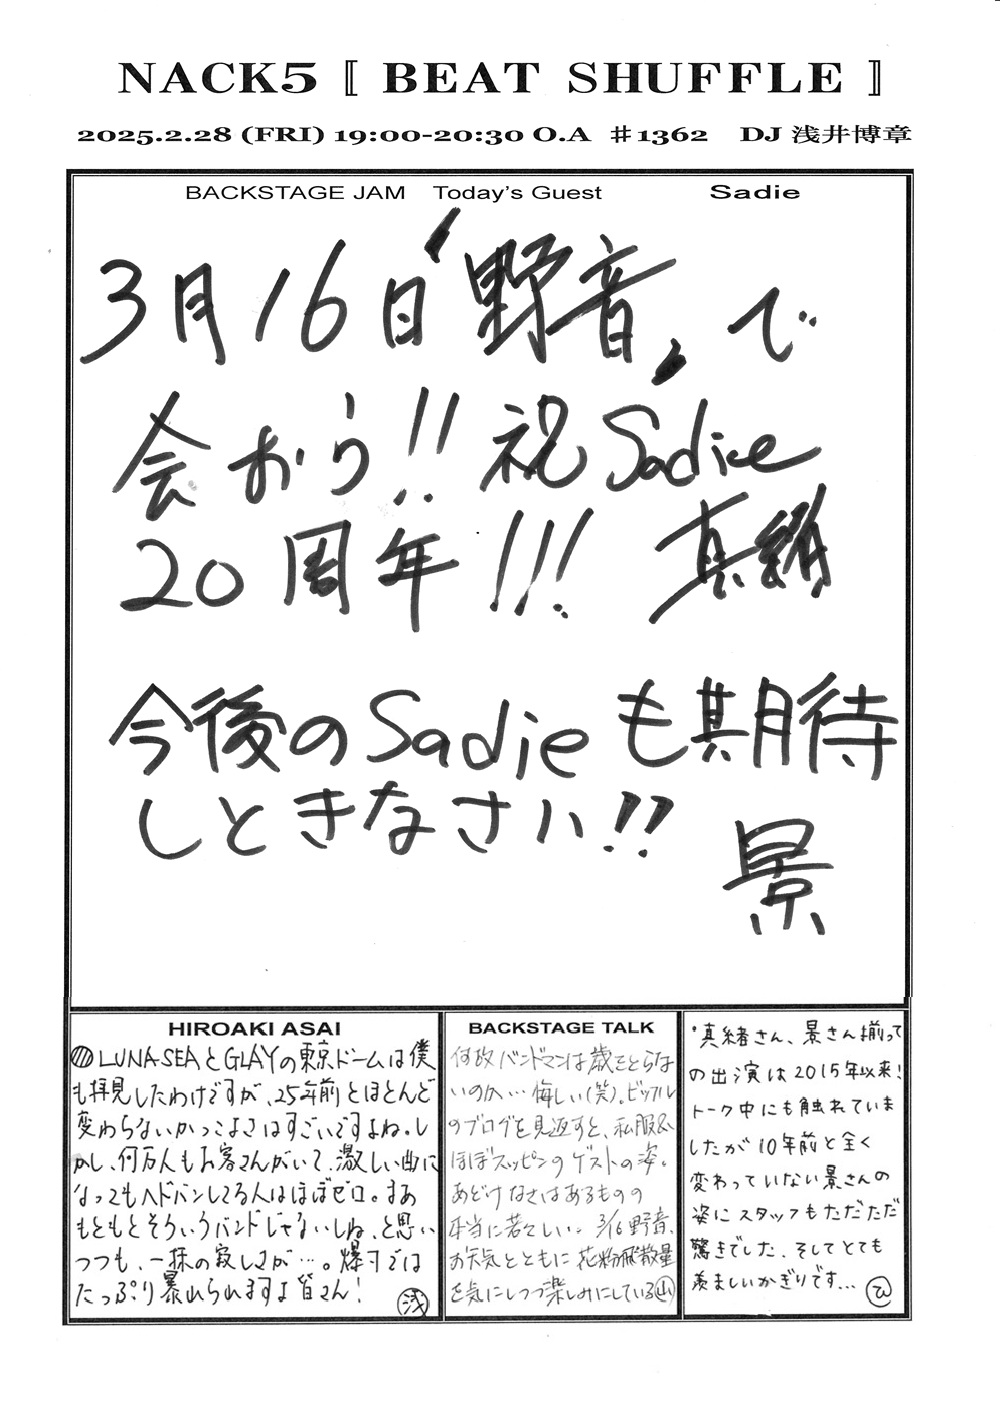 NACK5〚 BEAT SHUFFLE 〛
2025.2.28 (FRI) 19:00-20:30 O.A ♯1362 DJ 浅井博章
BACKSTAGE JAM Today's Guest Sadie
3月16日〝野音〟で
会おう!! 祝Sadie
20周年!!! 真緒
今後のSadieも期待
しときなさい!!
景
HIROAKI ASAI
LUNA SEAとGLAYの東京ドームは僕
も拝見したわけですが、25年前とほとんど
変わらないかっこよさはすごいですよね。し
かし、何万人もお客さんがいて、激しい曲に
なってもヘドバンしてる人はほぼゼロ。まあ
もともとそういうバンドじゃないしね、と思い
つつも、一抹の寂しさが…。爆弾では
たっぷり暴れられますよ皆さん! 浅
BACKSTAGE TALK
何故バンドマンは歳をとらな
いのか…悔しい(笑)。ビッフル
のブログを見返すと、私服&
ほぼスッピンのゲストの姿。
あどけなさはあるものの
本当に若々しい。3/16野音、
お天気とともに花粉飛散量
を気にしつつ楽しみにしている 山
・真緒さん、景さん揃って
の出演は2015年以来!
トーク中にも触れていま
したが10年前と全く
変わっていない景さんの
姿にスタッフもただただ
驚きでした。そしてとても
羨ましいかぎりです… ひ